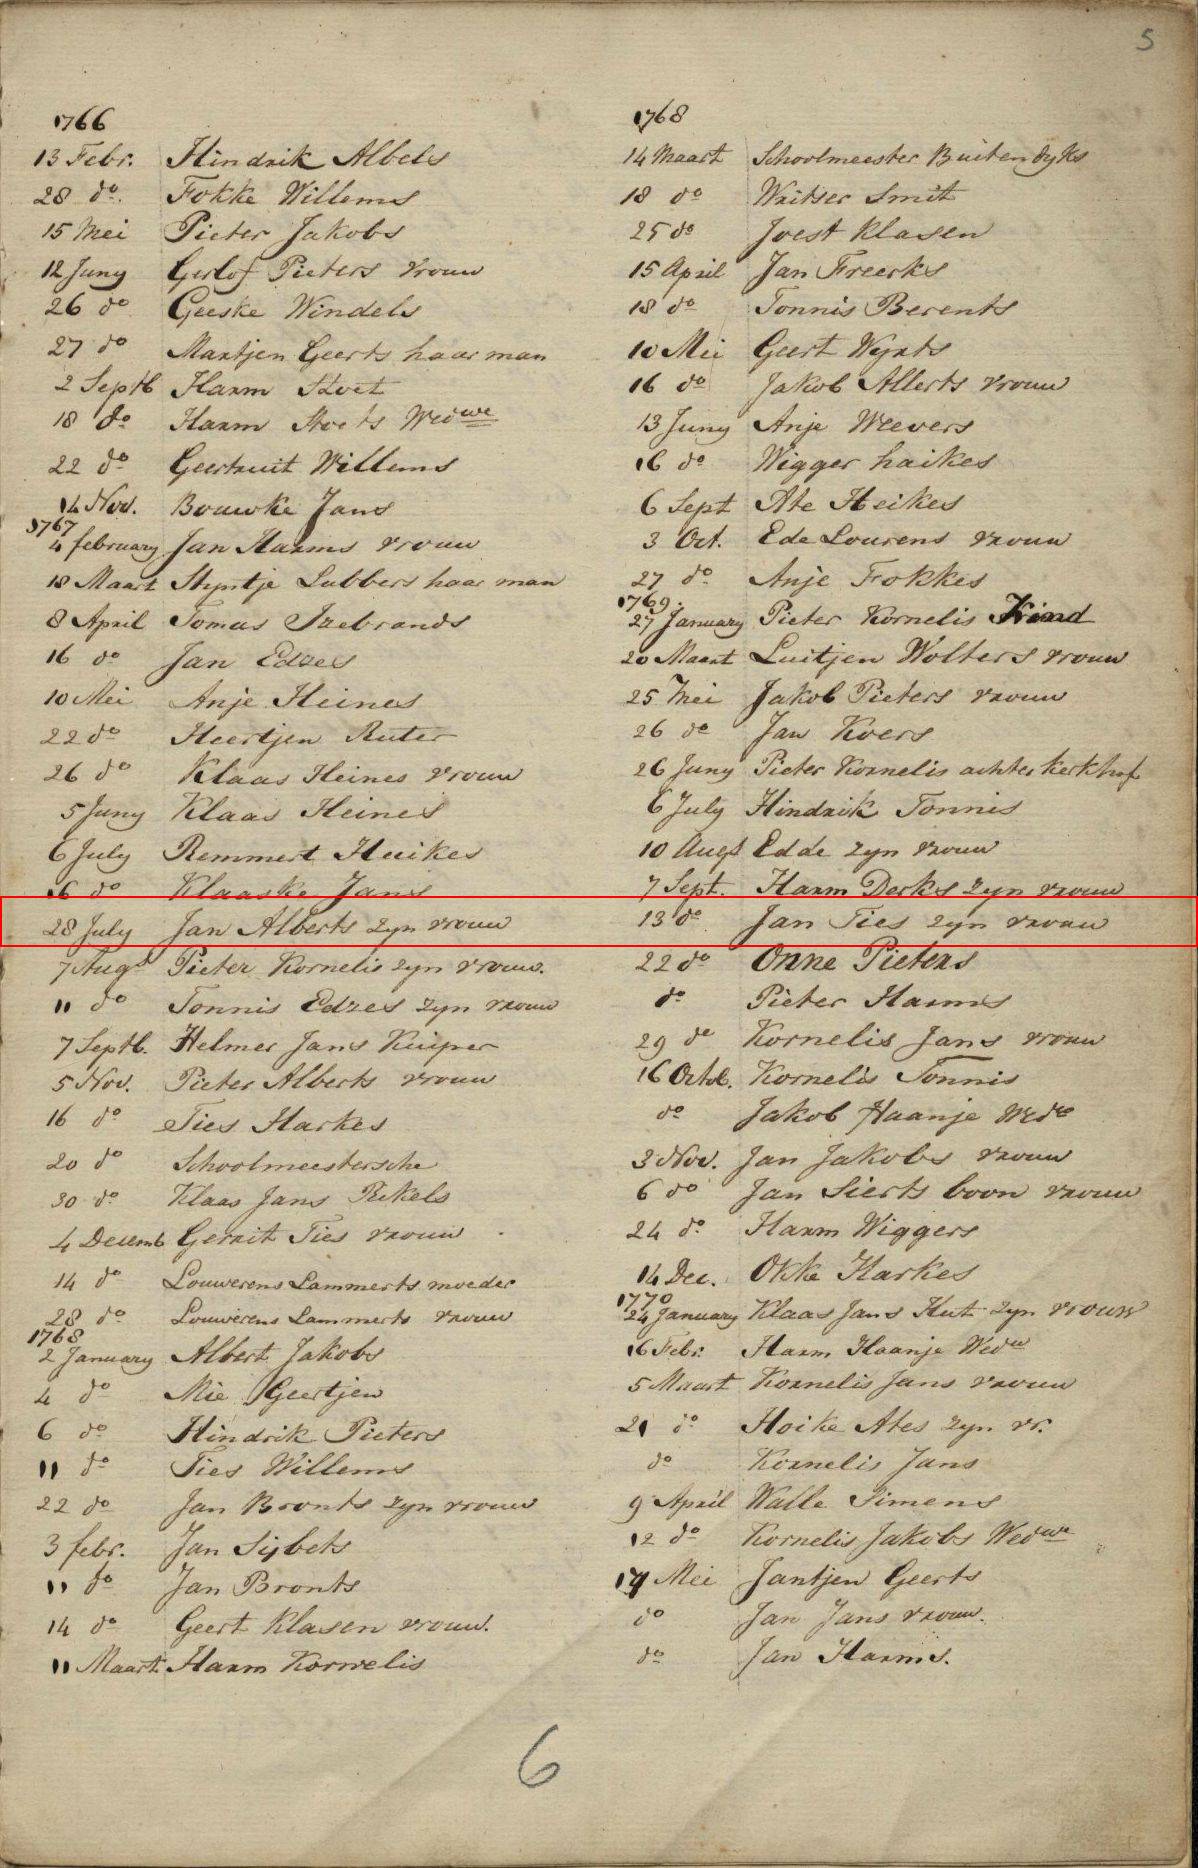 5
1766
13 Febr. Hindrik Albels
28 do. Fokke Willems
15 Mei Pieter Jakobs
12 Juny Gerlof Pieters vrouw
26 do Geeske Windels
27 do Martjen Geerts haar man
2 Septb Harm Stoet
18 do Harm Stoets Wedwe
22 do Geertruit Willems
14 Nov. Bouwke Jans
1767
4 february Jan Harms vrouw
18 Maart Styntje Lubbers haar man
8 April Tomas Izebrands
16 do Jan Edzes
10 Mei Anje Heines
22 do Heertjen Ruter
26 do Klaas Heines vrouw
5 Juny Klaas Heines
6 July Remmert Huikes
16 do Klaaske Jans
28 July Jan Alberts zyn vrouw
7 Augs Pieter Kornelis zyn vrouw.
11 do Tonnis Edzes zyn vrouw
7 Septb. Helmer Jans Kuiper
5 Nov. Pieter Alberts vrouw
16 do Ties Harkes
20 do Schoolmeestersche
30 do Klaas Jans Rekels
4 Decemb Gerrit Ties vrouw
14 do Louwerens Lammerts moeder
28 do Louwerens Lammerts vrouw
1768
2 January Albert Jakobs
4 do Mie Geertjen
6 do Hindrik Pieters
11 do Ties Willems
22 do Jan Bronts zyn vrouw
3 febr. Jan Sijbets
11 do Jan Bronts
14 do Geert Klasen vrouw.
11 Maart Harm Kornelis
1768
14 Maart Schoolmeester Buitendyks
18 do Writser Smit
25 do Joest Klasen
15 April Jan Freerks
18 do Tonnis Berents
10 Mei Geert Wyrts
16 do Jakob Allerts vrouw
13 Juny Anje Weevers
16 do Wigger haikes
6 Sept Ate Heikes
3 Oct. Ede Lourens vrouw
27 do Anje Fokkes
1769.
27 January Pieter Kornelis Kind
20 Maart Luitjen Wolters vrouw
25 Mei Jakob Pieters vrouw
26 do Jan Koers
26 Juny Pieter Kornelis achter kerkhof
6 July Hindrik Tonnis
10 Augs Edde zyn vrouw
7 Sept. Harm Derks zyn vrouw
13 do Jan Ties zyn vrouw
22 do Onne Pieters
do Pieter Harms
29 do Kornelis Jans vrouw
16 Octob. Kornelis Tonnis
do Jakob Haanje Wedwe
3 Nov. Jan Jakobs vrouw
6 do Jan Sierts boon vrouw
24 do Harm Wiggers
14 Dec. Okke Harkes
1770
24 January Klaas Jans Hut zyn vrouw
16 Febr. Harm Haanje Wedw
5 Maart Kornelis Jans vrouw
21 do Hoike Ates zyn vr.
do Kornelis Jans
9 April Walle Simens
12 do Kornelis Jakobs Wedwe
14 Mei Jantjen Geerts
do Jan Jans vrouw.
do Jan Harms.
6